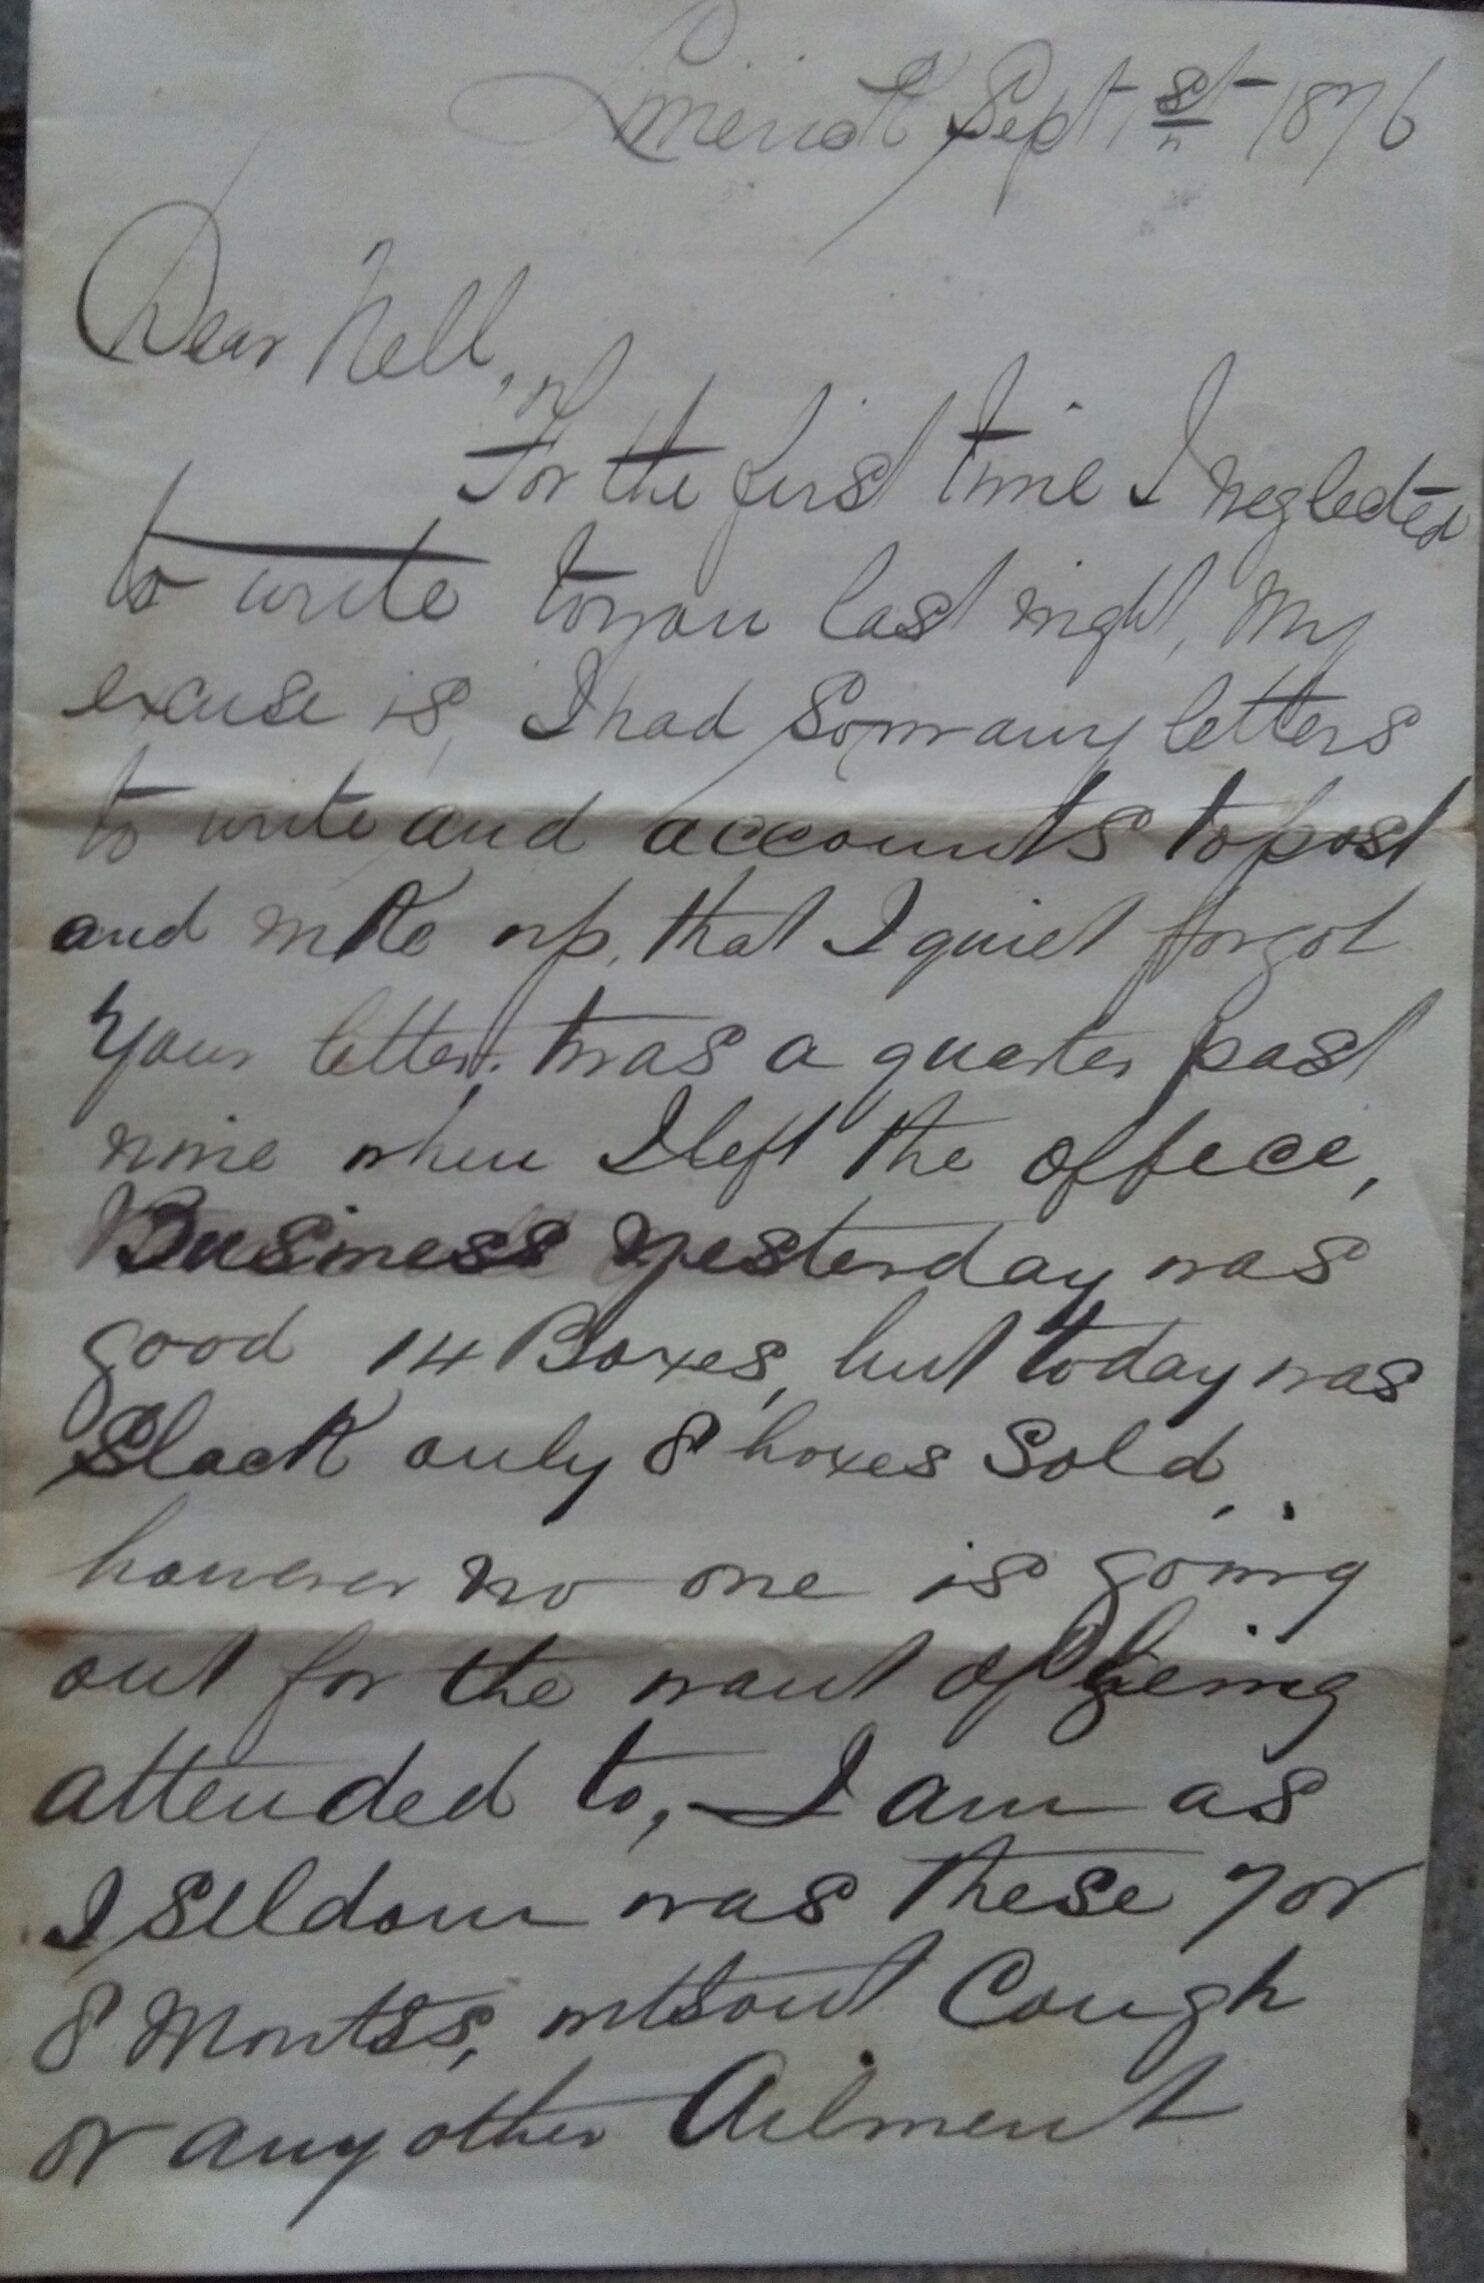 Limerick Sept 1876
Dear Nell,
For the first time I neglected
to write to you last night, My
excuse is, I had so many letters
to write and accounts to post
and mke up, that I quiet forgot
Your letter. twas a quarter past
nine when I left the office,
Business yesterday was
good 14 Boxes, but today was
Slack only 8 boxes Sold,
however no one is going
out for the want of being
attended to, I am as
I seldom was these 7 or
8 Months, without Cough
or any other Ailment